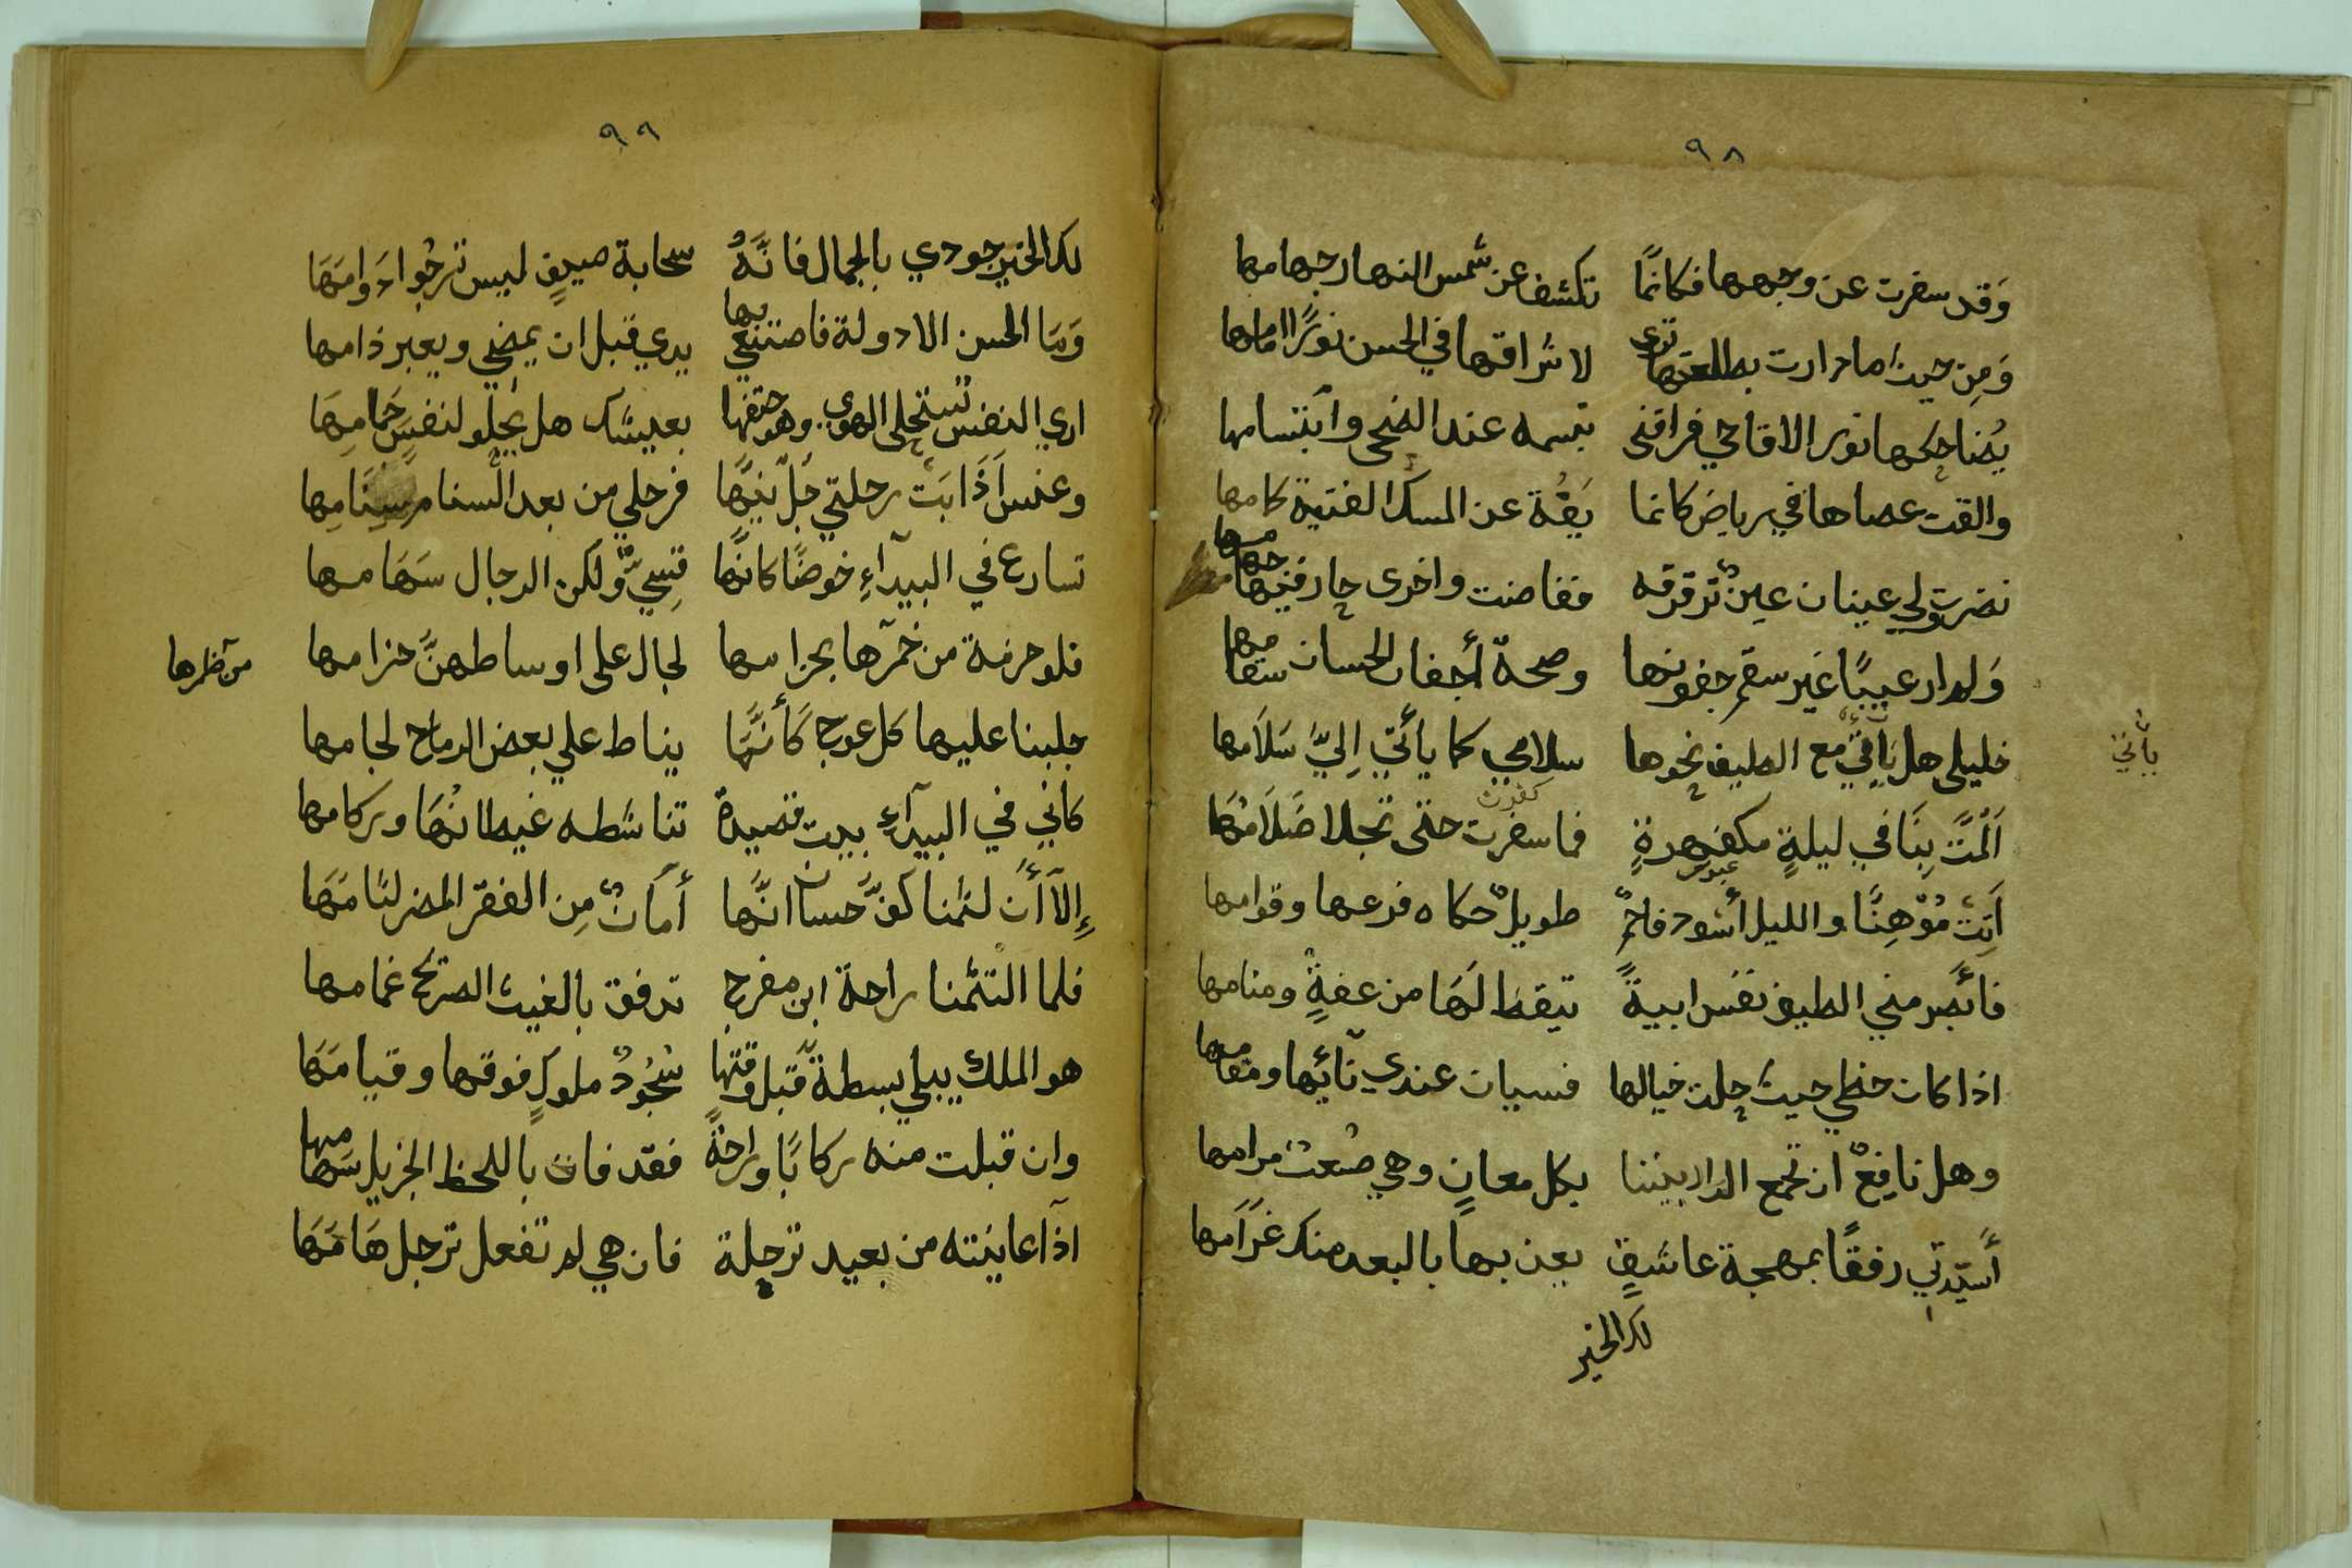 ٩٨
وَقد سفرت عن وجهها فكانمًا تكشف عن شمس النهار جهامها
وَمِن حيث ما دارت بطلعتها ترى لاشراقها في الحسن نورًا امامها
يُضاحكها نور الاقاحي فراقني تبسمه عند الضحى وابتسامها
والقت عصاها في رياض كانما يَفُة عن المسك الفتيق كامها
نضرت ولي عينان عينٌ ترقرقه ففاضت واخرى حار فيها جمامها
وَلم ار عيبًا غير سقم جفونها وصحة أجفان الحسان سقامها
خليلي هل يأتي مع الطيف نحوها سلامي كما يأتي اِليَّ سَلاَمها
يأتي
اَلمَّت بِنَا في ليلةٍ مكفهرةٍ فما سفرت حتى تجلا ضَلاَمُهَا
اَتِت مُوْهِنًا والليل أسود فاحمٌ طويلٌ حكاه فرعها وقوامها
فأبصر مني الطيف نفسَ ابيةً تيقظ لَهَا من عفةٍ ومنامها
اذا كان حظي حيث حلت خيالها فسيان عندي نآئيها ومقامها
وهل نافِعٌ ان تجمع الدار بيننا بكل معانٍ وهي صُعبْ مرامها
أسيّدتي رفقًا بمهجة عاشقٍ يعذبها بالبعد منك غرَامها
لك الخير
٩٩
لك الخير جودي بالجمال فانَّهُ سحابة صيفٍ ليس تُرجُوا دَوامَهَا
وَمَا الحسن الا دولة فاصنعي بها يدي قبل ان يمضي ويعبر ذامها
اري النفس تستحلي الهوى وهو حتفها بعيشك هل يحلو لنفسٍ حَمامِهَا
وعنس اَذَابَت رحلتي جَلّ نيّها فرحلي من بعد السنام سَنَامِها
تسارع في البيدآءِ خوضًا كانّها قِسِيٌّ ولكن الرجال سَهَامها
فلو حزمة من خمرها بحزامها لجال على اوساطهنَّ حزامها
من ظمرها
جلبنا عليها كل عوج كَأنَّهَا يناط علي بعض الرماح لجامها
كاني في البيدآءِ بيت قصيدة تناشطه غيطانُهَا وركامها
إِلآ أَن لثمنا كفَّ حسان انَّها أمَانٌ مِن الفقر المضر لثامَهَا
فلما التثمنا راحة ابن مفرج تدفق بالغيث الصريح غمامها
هو الملك يبلي بسطةً قبل وقتها سُجُودٌ ملوكٍ فوقها وقيامَهَا
وان قبلت منه ركابًا وراحةً فقد فاز باللحظ الجزيل سهامها
اذآ عاينته من بعيد ترجلة فان هي لم تفعل ترجل هَامَهَا